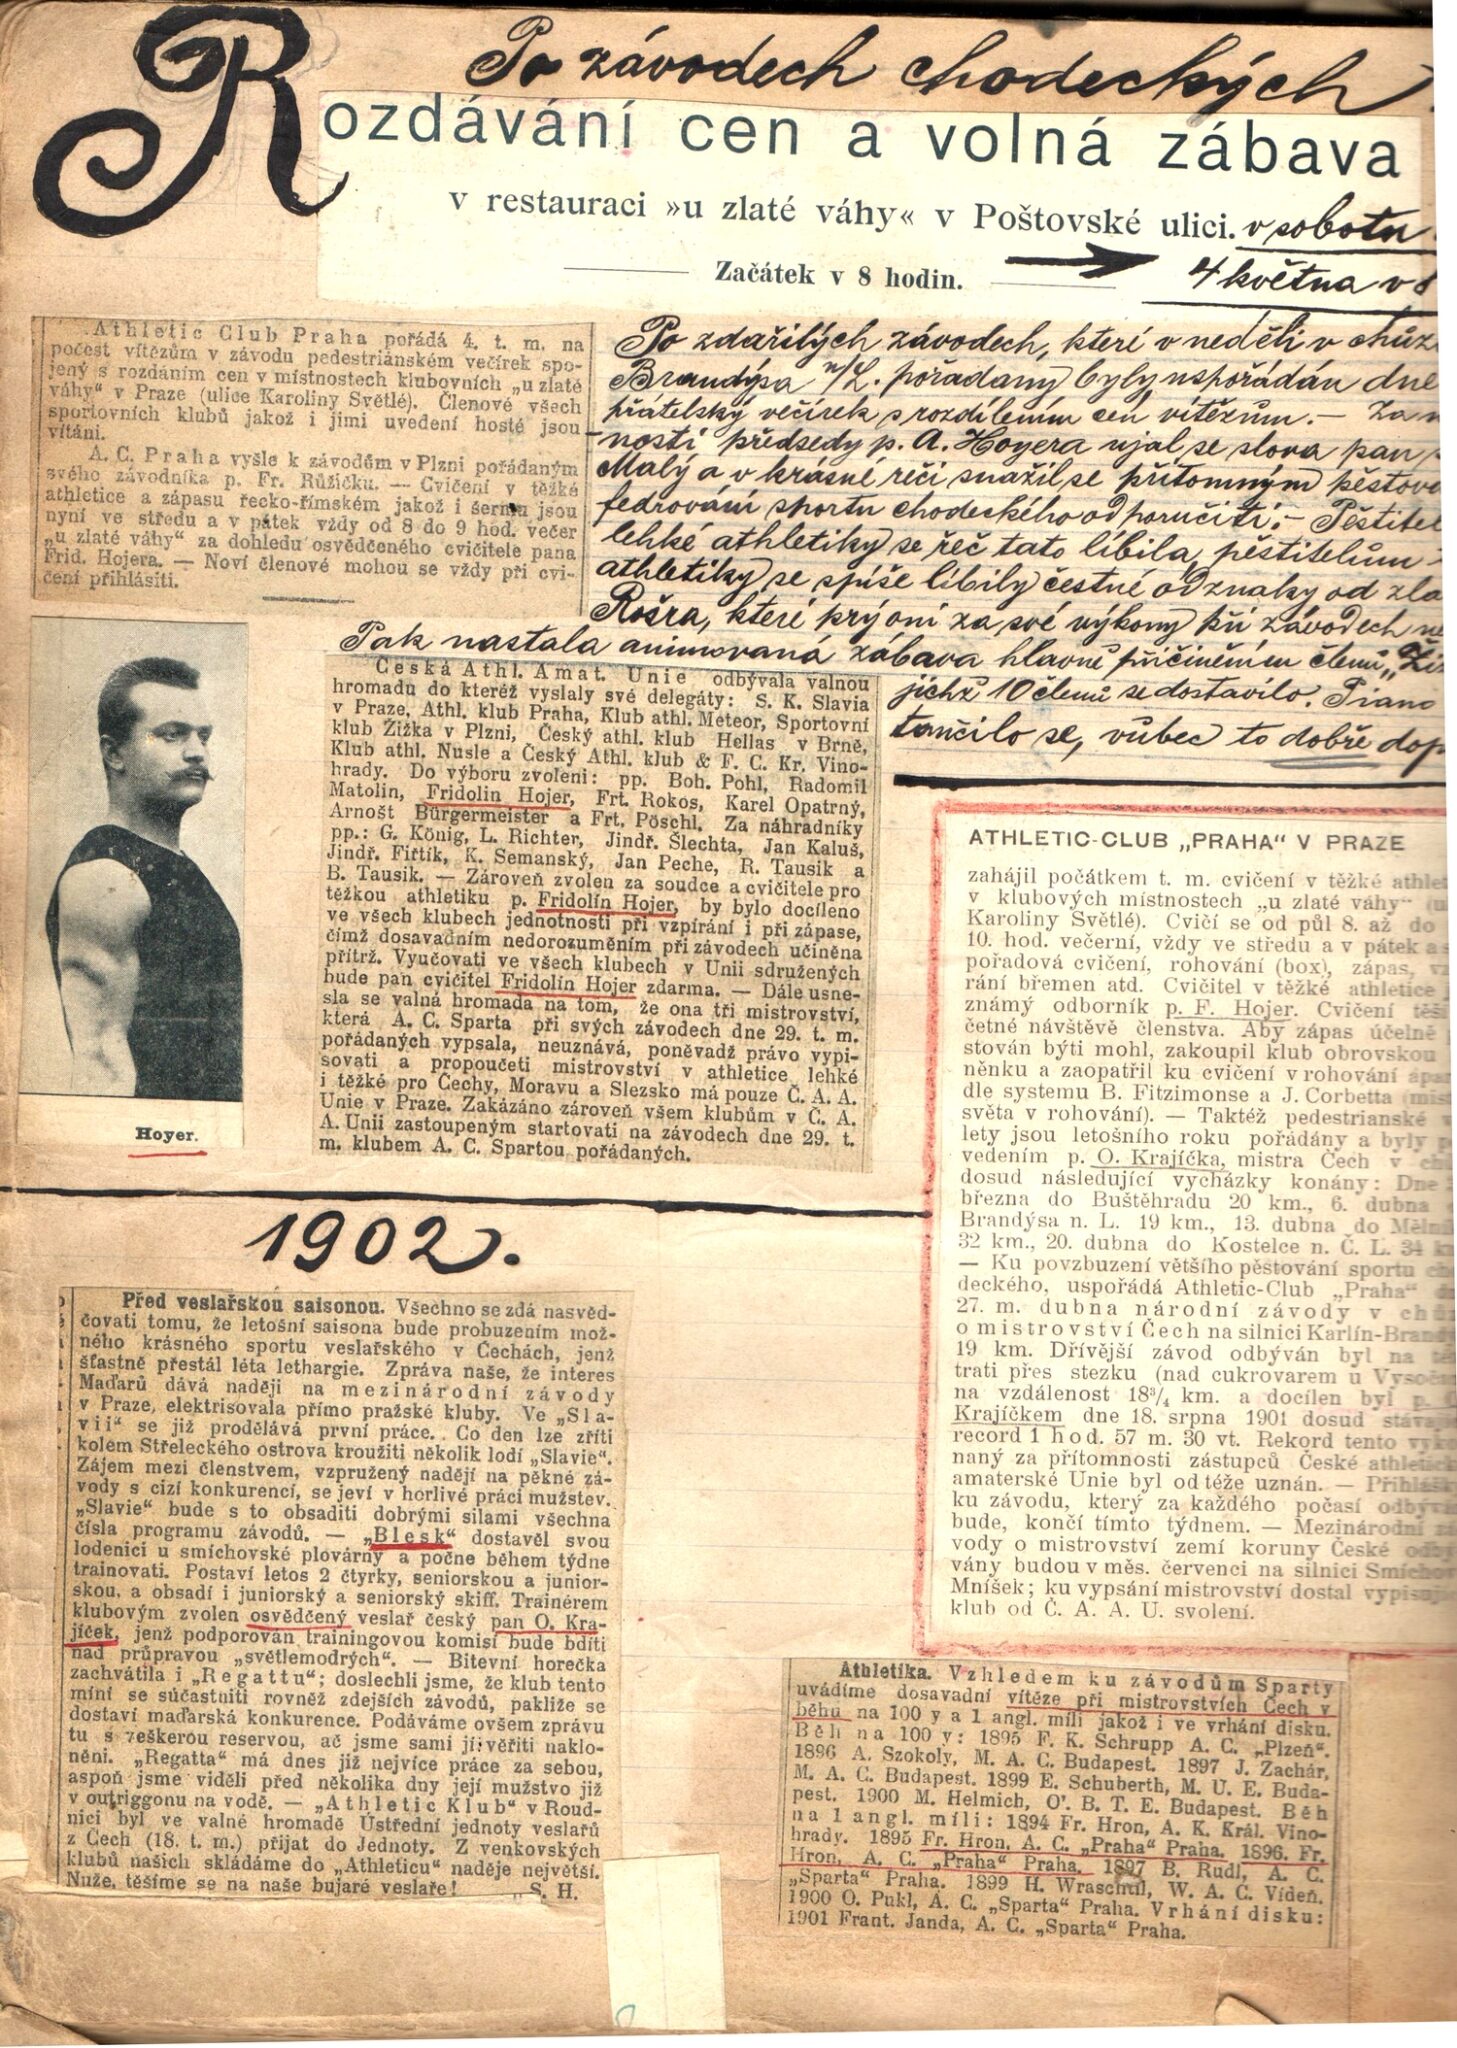 Po závodech chodeckých
Rozdávání cen a volná zábava
v restauraci »u zlaté váhy« v Poštovské ulici. v sobotu
Začátek v 8 hodin.
4 května v 8
Athletic Club Praha pořádá 4. t. m. na
počest vítězům v závodu pedestriánském večírek spo-
jený s rozdáním cen v místnostech klubovních „u zlaté
váhy“ v Praze (ulice Karoliny Světlé). Členové všech
sportovních klubů jakož i jimi uvedení hosté jsou
vítáni.
A. C. Praha vyšle k závodům v Plzni pořádaným
svého závodníka p. Fr. Růžičku. — Cvičení v těžké
athletice a zápasu řecko-římském jakož i šermu jsou
nyní ve středu a v pátek vždy od 8 do 9 hod. večer
„u zlaté váhy“ za dohledu osvědčeného cvičitele pana
Frid. Hojera. — Noví členové mohou se vždy při cvi-
čení přihlásiti.
Po zdařilých závodech, které v neděli v chůz
Brandýsa n/L. pořadany byly uspořádán dne
přátelský večírek s rozdílením cen vítězům. — Za
ností předsedy p. A. Hoyera ujal se slova pan
Malý a v krásné řeči snažil se přítomným pěstova
fedrování sportu chodeckého odporučiti. — Pěstitel
lehké athletiky se řeč tato líbila, pěstitelům
athletiky se spíše líbily čestné odznaky od zla
Rošra, které prý oni za své výkony při závodech ne
Pak nastala animovaná zábava hlavně přičiněním členů „Ži
jichž 10 členů se dostavilo. Piano
tančilo se, vůbec to dobře dop
Hoyer.
Česká Athl. Amat. Unie odbývala valnou
hromadu do kteréž vyslaly své delegáty: S. K. Slavia
v Praze, Athl. klub Praha, Klub athl. Meteor, Sportovní
klub Žižka v Plzni, Český athl. klub Hellas v Brně,
Klub athl. Nusle a Český Athl. klub & F. C. Kr. Vino-
hrady. Do výboru zvoleni: pp. Boh. Pohl, Radomil
Matolin, Fridolin Hojer, Frt. Rokos, Karel Opatrný,
Arnošt Bürgermeister a Frt. Pöschl. Za náhradníky
pp.: G. König, L. Richter, Jindř. Šlechta, Jan Kaluš,
Jindř. Fiřtík, K. Semanský, Jan Peche, R. Tausik a
B. Tausik. — Zároveň zvolen za soudce a cvičitele pro
těžkou athletiku p. Fridolín Hojer, by bylo docíleno
ve všech klubech jednotnosti při vzpírání i při zápase,
čímž dosavadním nedorozuměním při závodech učiněna
přítrž. Vyučovati ve všech klubech v Unii sdružených
bude pan cvičitel Fridolín Hojer zdarma. — Dále usne-
sla se valná hromada na tom, že ona tři mistrovství,
která A. C. Sparta při svých závodech dne 29. t. m.
pořádaných vypsala, neuznává, poněvadž právo vypi-
sovati a propoučeti mistrovství v athletice lehké
i těžké pro Čechy, Moravu a Slezsko má pouze Č. A. A.
Unie v Praze. Zakázáno zároveň všem klubům v Č. A.
A. Unii zastoupeným startovati na závodech dne 29. t.
m. klubem A. C. Spartou pořádaných.
ATHLETIC-CLUB „PRAHA“ V PRAZE
zahájil počátkem t. m. cvičení v těžké athlet
v klubových místnostech „u zlaté váhy“ (u
Karoliny Světlé). Cvičí se od půl 8. až do
10. hod. večerní, vždy ve středu a v pátek a
pořadová cvičení, rohování (box), zápas, vz
rání břemen atd. Cvičitel v těžké athletice j
známý odborník p. F. Hojer. Cvičení těší
četné návštěvě členstva. Aby zápas účelně
stován býti mohl, zakoupil klub obrovskou
něnku a zaopatřil ku cvičení v rohování apa
dle systemu B. Fitzimonse a J. Corbetta (mist
světa v rohování). — Taktéž pedestrianské v
lety jsou letošního roku pořádány a byly p
vedením p. O. Krajíčka, mistra Čech v ch
dosud následující vycházky konány: Dne
března do Buštěhradu 20 km., 6. dubna
Brandýsa n. L. 19 km., 13. dubna do Mělní
32 km., 20. dubna do Kostelce n. Č. L. 34 k
— Ku povzbuzení většího pěstování sportu ch
deckého, uspořádá Athletic-Club „Praha“ d
27. m. dubna národní závody v chů
o mistrovství Čech na silnici Karlín-Brand
19 km. Dřívější závod odbýván byl na té
trati přes stezku (nad cukrovarem u Vysoča
na vzdálenost 18¾ km. a docílen byl p. O
Krajíčkem dne 18. srpna 1901 dosud stáva
record 1 hod. 57 m. 30 vt. Rekord tento vyko
naný za přítomnosti zástupců České athletick
amaterské Unie byl od téže uznán. — Přihláš
ku závodu, který za každého počasí odbýv
bude, končí tímto týdnem. — Mezinárodní zá
vody o mistrovství zemí koruny České odbý
vány budou v měs. červenci na silnici Smícho
Mníšek; ku vypsání mistrovství dostal vypisuj
klub od Č. A. A. U. svolení.
1902.
Před veslařskou saisonou. Všechno se zdá nasvěd-
čovati tomu, že letošní saisona bude probuzením mož-
ného krásného sportu veslařského v Čechách, jenž
šťastně přestál léta lethargie. Zpráva naše, že interes
Maďarů dává naději na mezinárodní závody
v Praze, elektrisovala přímo pražské kluby. Ve „Sla-
vii“ se již prodělává první práce. Co den lze zříti
kolem Střeleckého ostrova kroužiti několik lodí „Slavie“.
Zájem mezi členstvem, vzpružený nadějí na pěkné zá-
vody s cizí konkurencí, se jeví v horlivé práci mužstev.
„Slavie“ bude s to obsaditi dobrými silami všechna
čísla programu závodů. — „Blesk“ dostavěl svou
loděnici u smíchovské plovárny a počne během týdne
trainovati. Postaví letos 2 čtyrky, seniorskou a junior-
skou, a obsadí i juniorský a seniorský skiff. Trainérem
klubovým zvolen osvědčený veslař český pan O. Kra-
jíček, jenž podporován trainingovou komisí bude bdíti
nad průpravou „světlemodrých“. — Bitevní horečka
zachvátila i „Regattu“; doslechli jsme, že klub tento
míní se súčastniti rovněž zdejších závodů, pakliže se
dostaví maďarská konkurence. Podáváme ovšem zprávu
tu s veškerou reservou, ač jsme sami jí věřiti naklo-
něni. „Regatta“ má dnes již nejvíce práce za sebou,
aspoň jsme viděli před několika dny její mužstvo již
v outriggonu na vodě. — „Athletic Klub“ v Roud-
nici byl ve valné hromadě Ústřední jednoty veslařů
z Čech (18. t. m.) přijat do Jednoty. Z venkovských
klubů našich skládáme do „Athleticu“ naděje největší.
Nuže, těšíme se na naše bujaré veslaře! S. H.
Athletika. Vzhledem ku závodům Sparty
uvádíme dosavadní vítěze při mistrovstvích Čech v
běhu na 100 y a 1 angl. míli jakož i ve vrhání disku.
Běh na 100 y: 1895 F. K. Schrupp A. C. „Plzeň“.
1896 A. Szokoly, M. A. C. Budapest. 1897 J. Zachár,
M. A. C. Budapest. 1899 E. Schuberth, M. U. E. Buda-
pest. 1900 M. Helmich, O'. B. T. E. Budapest. Běh
na 1 angl. míli: 1894 Fr. Hron, A. K. Král. Vino-
hrady. 1895 Fr. Hron, A. C. „Praha“ Praha. 1896. Fr.
Hron, A. C. „Praha“ Praha. 1897 B. Rudl, A. C.
„Sparta“ Praha. 1899 H. Wraschtil, W. A. C. Vídeň.
1900 O. Pukl, A. C. „Sparta“ Praha. Vrhání disku:
1901 Frant. Janda, A. C. „Sparta“ Praha.